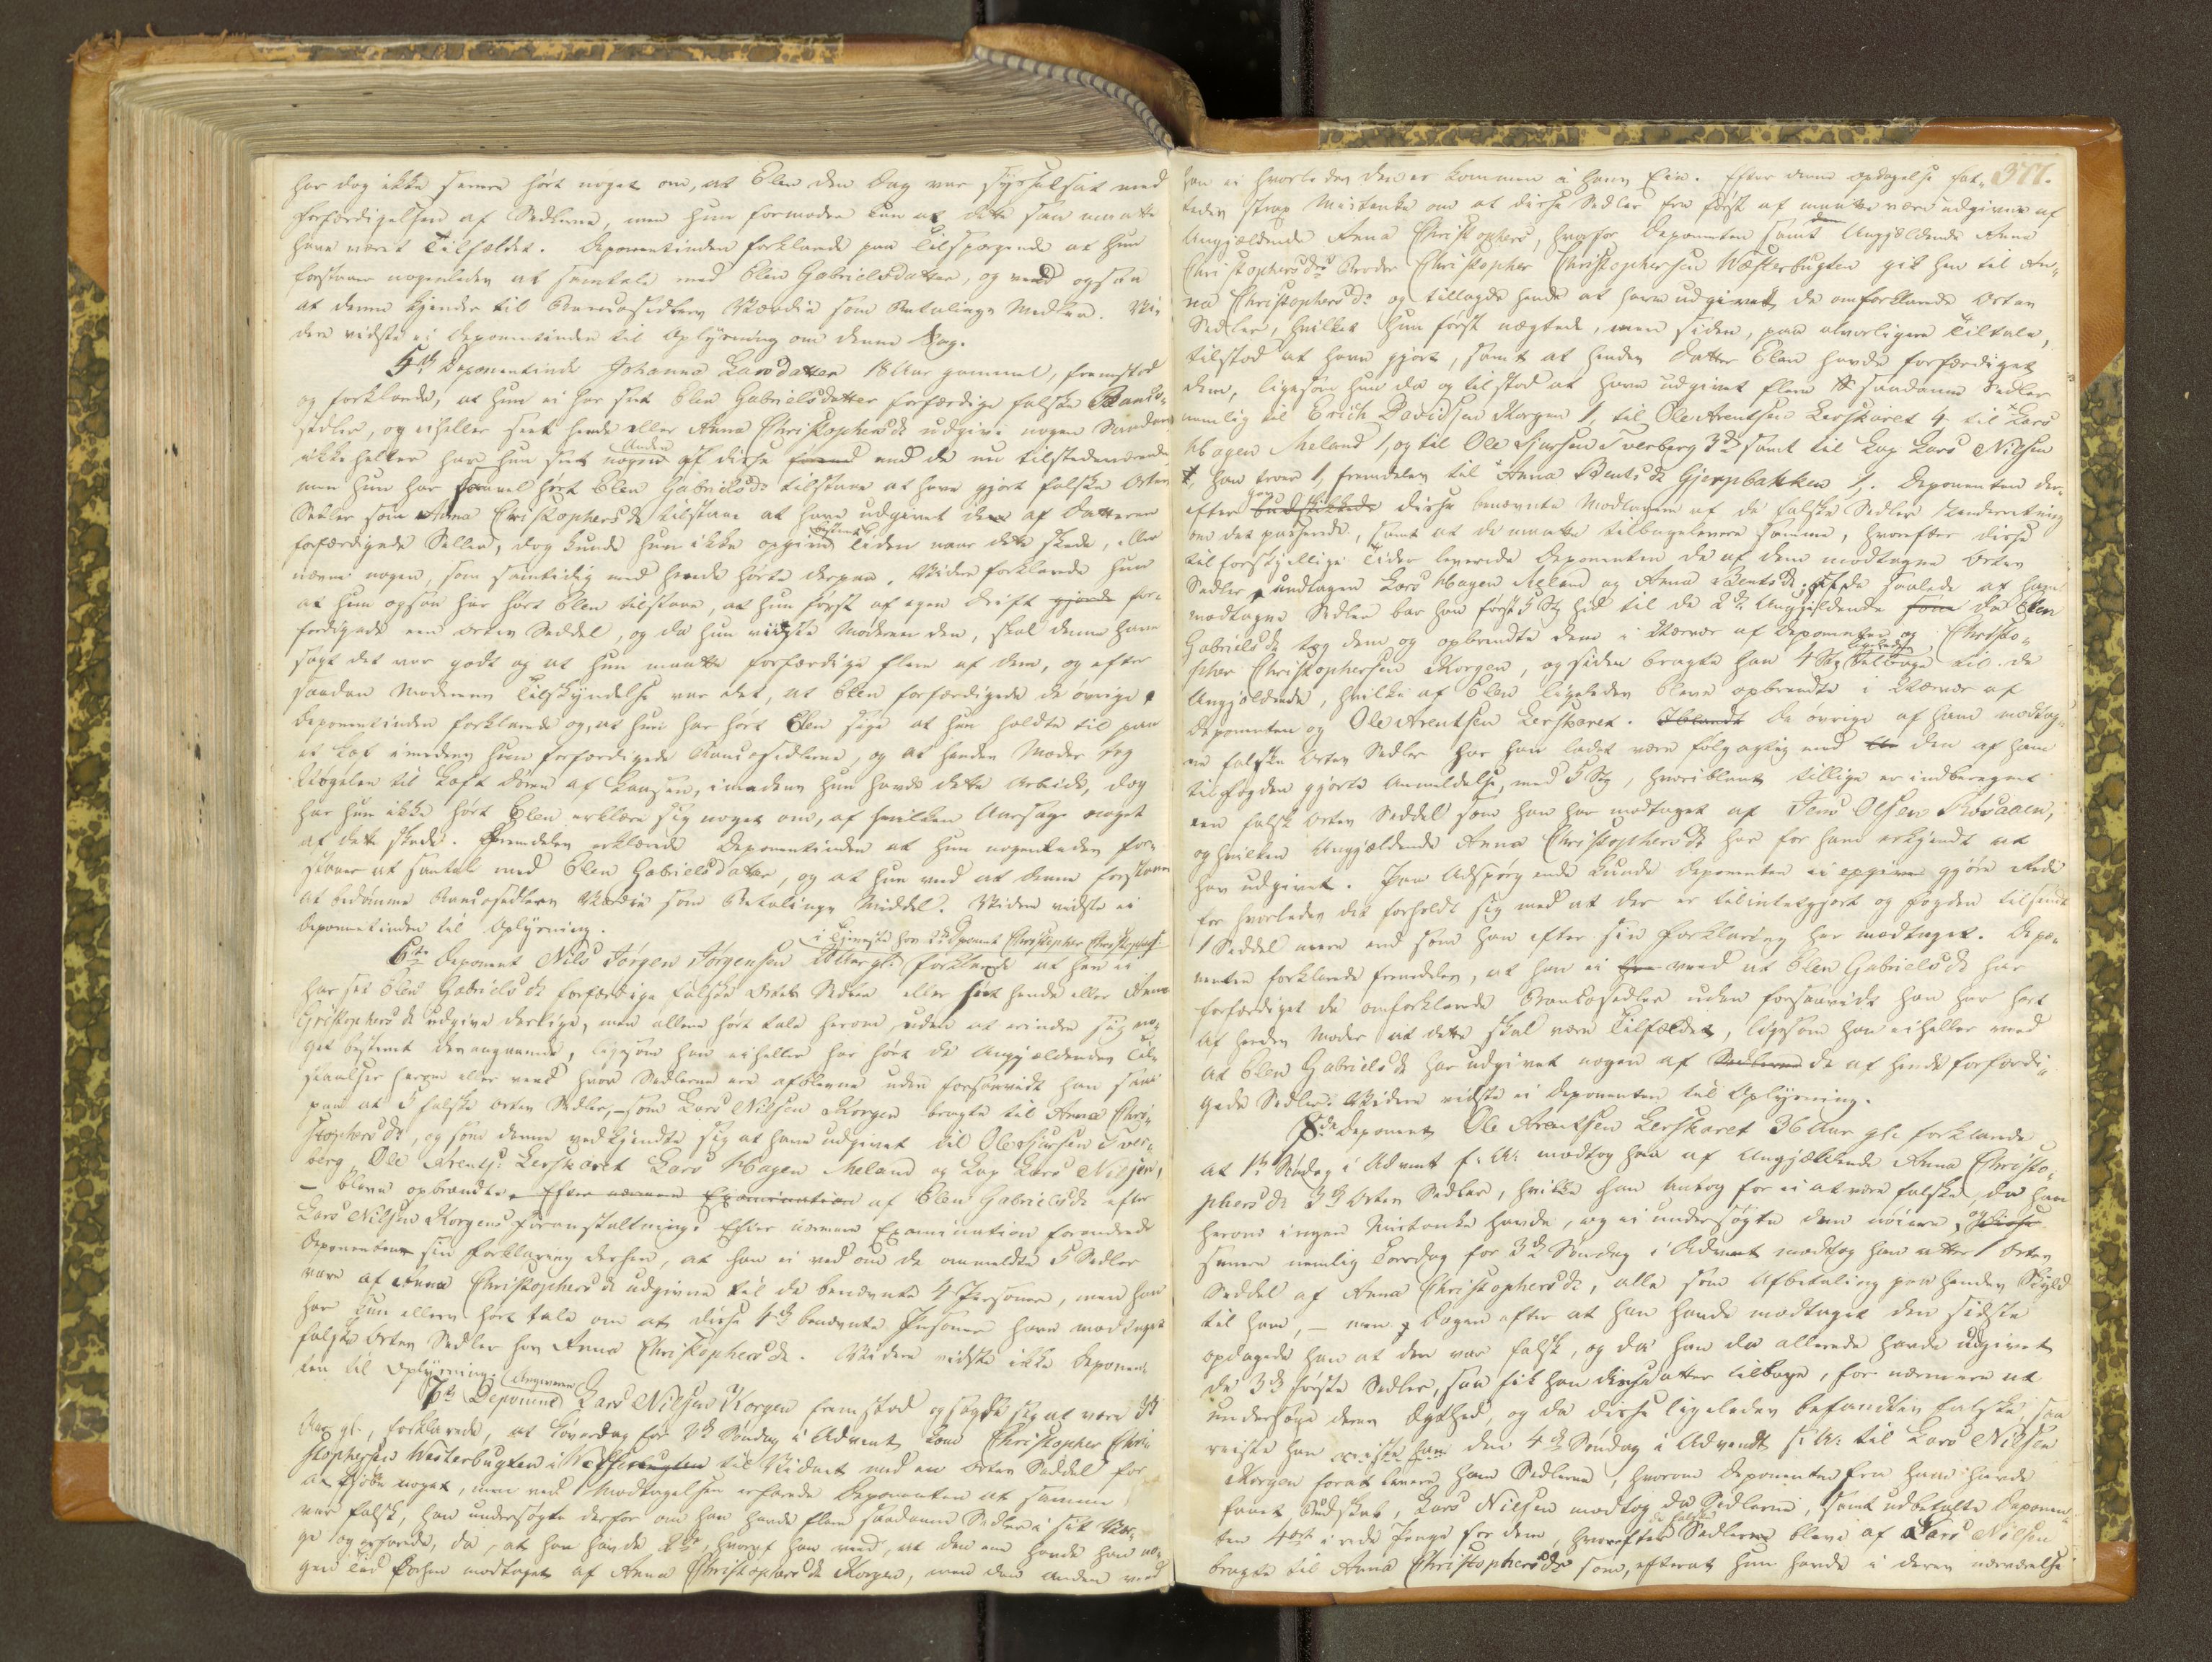 har dog ikke senere hørt noget om, at Elen den Dag var sysselsat med
Forfærdigelsen af Sedlerne, men hun formoder kun at dette saa maatte
have været Tilfældet. Deponentinden forklarede paa Tilspørgende at hun
forstaaer nogenleden at samtale med Elen Gabrielsdatter, og veed ogsaa
at denne kjender til Bancosedlers Værdie som Betalings Middler. Vi-
dere vidste ei Deponentinden til Oplysning om denne Sag.
5te Deponentinde Johanna Larsdatter 18 Aar gammel, fremstod
og forklarede, at hun ei har seet Elen Gabrielsdatter forfærdige falske Banko-
sedler, og eiheller seet hende eller Anna Christophersdr udgive nogen Saadan
ikke heller har hun seet nogen Anden af disse end de nu tilstedeværende
men hun har hørt Elen Gabrielsdr tilstaae at have gjort falske Orten
Sedler som Anna Christophersdr tilstaae at have udgivet de af Datteren
forfærdigede Sedler, dog kunde hun ikke opgive bestemt Tiden naar dette skede, eller
nævne nogen, som samtidig med hende hørte derpaa. Videre forklarede hun
at hun ogsaa har hørt Elen tilstaae, at hun først af egen Drift gjorde for-
færdigede een Orten Seddel, og da hun viiste Moderen den, skal denne have
sagt det var godt og at hun maatte forfærdige flere af dem, og efter
saadan Moderens Tilskyndelse var det, at Elen forfærdigede de øvrige.
Deponentinden forklarede og, at hun har hørt Elen sige at hun holdte til paa
et Loft imedens hun forfærdigede Bancosedlerne, og at hendes Moder tog
Nøgelen til Loft Døren af Laasen, imedens hun havde dette Arbeide, dog
har hun ikke hørt Elen erklære sig noget om, af hvilken Aarsag noget
af dette skede. Fremdeles erklærede Deponentinden at hun nogenleden for-
staaer at samtale med Elen Gabrielsdatter, og at hun veed at denne forstaaer
at bedømme Bancosedlers Værdie som Betalings Middel. Videre vidste ei
Deponentinden til Oplysning.
i Tjeneste hos Deponent Christopher Christophers
6te Deponent Nils Jørgen Jørgensen Aar gl. forklarede at han ei
har set Elen Gabrielsdr forfærdige falske Orten Sedler eller seet hende eller Anna
Christophersdr udgive deslige, men allene hørt tale herom, uden at erindre sig no-
get bestemt derangaaende, ligesom han eiheller har hørt de Angjældendes Til-
staaelser herom eller veed hvor Sedlerne ere afblevne uden forsaavidt han saae
paa at 5 falske Orten Sedler, – som Lars Nilsen Korgen bragte til Anna Chri-
stophersdr, og som denne vedkjendte sig at have udgivet til Ole Siursen Tver-
berg, Ole Arents: Lerskaret Lars Hagen Meland og Lap Lars Nilsen,
– bleve opbrændte, Efter nærmere Examination af Elen Gabrielsdr efter
Lars Nilsen Korgens Foranstaltning. Efter nærmere Examination forandrede
Deponenten sin Forklaring derhen, at han ei ved om de anmeldte 5 Sedler
vare af Anna Christophersdr udgivne til de benævnte 4 Personer, men han
har kun ellers hørt tale om at disse 4de benævnte Personer have modtaget
falske Orten Sedler hos Anna Christophersdr. Videre vidste ikke Deponen-
ten til Oplysning. Angiveren
7de Deponent Lars Nilsen Korgen fremstod og sagde sig at være
Aar gl., forklarede, at Løverdag før 2den Søndag i Advent kom Christopher Chri-
stophersen Westerbugten i Westerbugten til Vidnet med en Orten Seddel for
at kjøbe noget, men ved Modtagelsen erfarede Deponenten at samme
var falsk, han undersøgte derfor om han havde flere saadanne Sedler i sit Væ-
ge og erfarede, da, at han havde 2de, hvoraf han veed, at den ene havde han no-
gen Tid forhen modtaget af Anna Christophersdr Korgen, men den anden veed
377.
han ei hvorleden den er kommen i hans Eie. Efter denne Opdagelse fat-
tedes strax Mistanke om at disse Sedler fra først af maatte være udgivne af
Angjældende Anna Christophers, hvorfor Deponenten samt den Angjældende Anna
Christophersdrs Broder Christopher Christophersen Wæsterbugten gik hen til An-
na Christophersdr og tillagde hende at have udgivet de omforklarede Orten
Sedler, hvilket hun først nægtede, men siden, paa alvorligere Tiltale,
tilstod at have gjort, samt at hendes Datter Elen havde forfærdiget
dem, ligesom hun da og tilstod at have udgivet flere saadanne Sedler
nemlig til Erich Davidsen Korgen 1, til Ole Arentsen Lerskaret 4 til Lars
Hagen Meland 1, og til Ole Siursen Tverberg 3de samt til Lap Lars Nilsen
han troer 1, fremdeles til Anna Bentsdr Gjerpbakken 1,. Deponenten der-
efter budskikkede gav disse benævnte Modtagere af de falske Sedler Underretning
om det passerede, samt at de maatte tilbagelevere samme, hvorefter disse
til forskjellige Tider leverede Deponenten de af dem modtagne Orten
Sedler undtagen Lars Hagen Meland og Anna Bentsdr. De saalede af ham
modtagne Sedler bar han først 5 Stk hid til de 2de Angjældende da Elen
Gabrielsdr tog dem og opbrændte dem i Nærvær af Deponenten og Christo-
pher Christophersen Korgen, og siden bragte han 4 Stk ligeledes tilbage til de
Angjældende, hvilke af Elen ligeleden bleve opbrændte i Nærvær af
Deponenten og Ole Arentsen Lerskaret. Iblandt De øvrige af ham modtag-
ne falske Orten Sedler har han ladet være følgagtig med den af ham
til Fogden gjorte Anmeldelse, med 5 Stk, hvoriblant tillige er indberegnet
een falsk Orten Seddel som han har modtaget af Jens Olsen Bovaaen,
og hvilken Angjældende Anna Christophersdr har for ham erkjendt at
hav udgivet. Paa Adspørgende kunde Deponenten ei opgive gjøre Rede
for hvorleden det forholdt sig med at der er tilintetgjort og Fogden tilsendt
1 Seddel mere end som han efter sin Forklaring har modtaget. Depo-
nenten forklarede fremdeles, at han ei veed at Elen Gabrielsdr har
forfærdiget de omforklarede Bankosedler uden forsaavidt han har hørt
af hendes Moder at dette skal være Tilfældet, ligesom han eiheller veed
at Elen Gabrielsdr har udgivet nogen af Sedlerne de af hende forfærdi-
gede Sedler. Videre vidste ei Deponenten til Oplysning.
8de Deponent Ole Arentsen Lerskaret 36 Aar gl. forklarede
at 1te Søndag i Advent f. A. modtog han af Angjældende Anna Christo-
phersdr 3de Orten Sedler, hvilke han antog for ei at være falske da han
herom ingen Mistanke havde, og ei undersøgte dem nøiere, og disse
senere nemlig Torsdag før 3de Søndag i Advent modtog han atter 1 Orten
Seddel af Anna Christophersdr, alle som Afbetaling paa hendes Skyld
til ham, – men Dagen efter at han havde modtaget den sidste
opdagede han at den var falsk, og da han da allerede havde udgivet
de 3de første Sedler, saa fik han disse atter tilbage, for nærmere at
undersøge deres Ægthed, og da disse ligeleden befandtes falske saa
reiste han reiste han den 4de Søndag i Advendt f. A. til Lars Nilsen
Korgen forat levere ham Sedlerne, hvorom Deponenten fra ham havde
faaet Budskab, Lars Nilsen modtog da Sedlerne, samt udbetalte Deponen-
ten 4 ort i rede Penge for dem, hvorefter de falske Sedlerne bleve af Lars Nilsen
bragte til Anna Christophersdr som, efterat hun havde i deres Nærværelse